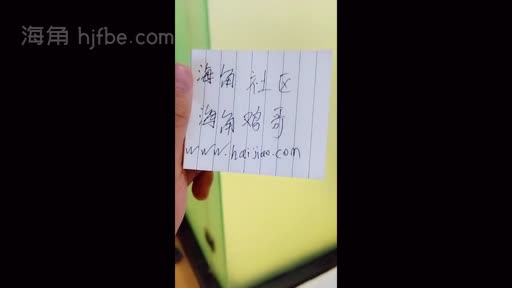 海角 hjfbe.com
海角社区
海角鸡哥
www.haijiao.com